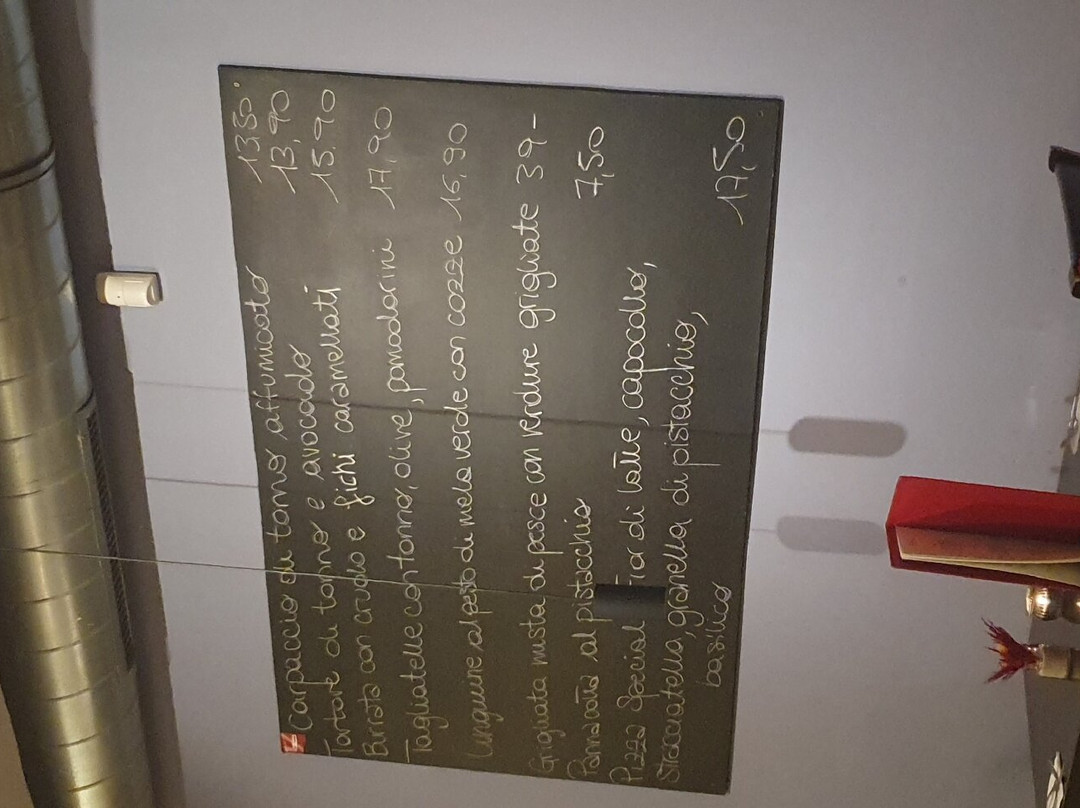 Carpaccio di tonno affumicato 13,50
Tartare di tonno e avocado 13,90
Burrata con crudo e fichi caramellati 15,90
Tagliatelle con tonno, olive, pomodorini 17,90
Linguine al pesto di mela verde con cozze 16,90
Grigliata mista di pesce con verdure grigliate 39-
Pannacotta al pistacchio 7,50
Pizza Special Fior di latte, capocollo,
Stracciatella, granella di pistacchio,
basilico 17,50